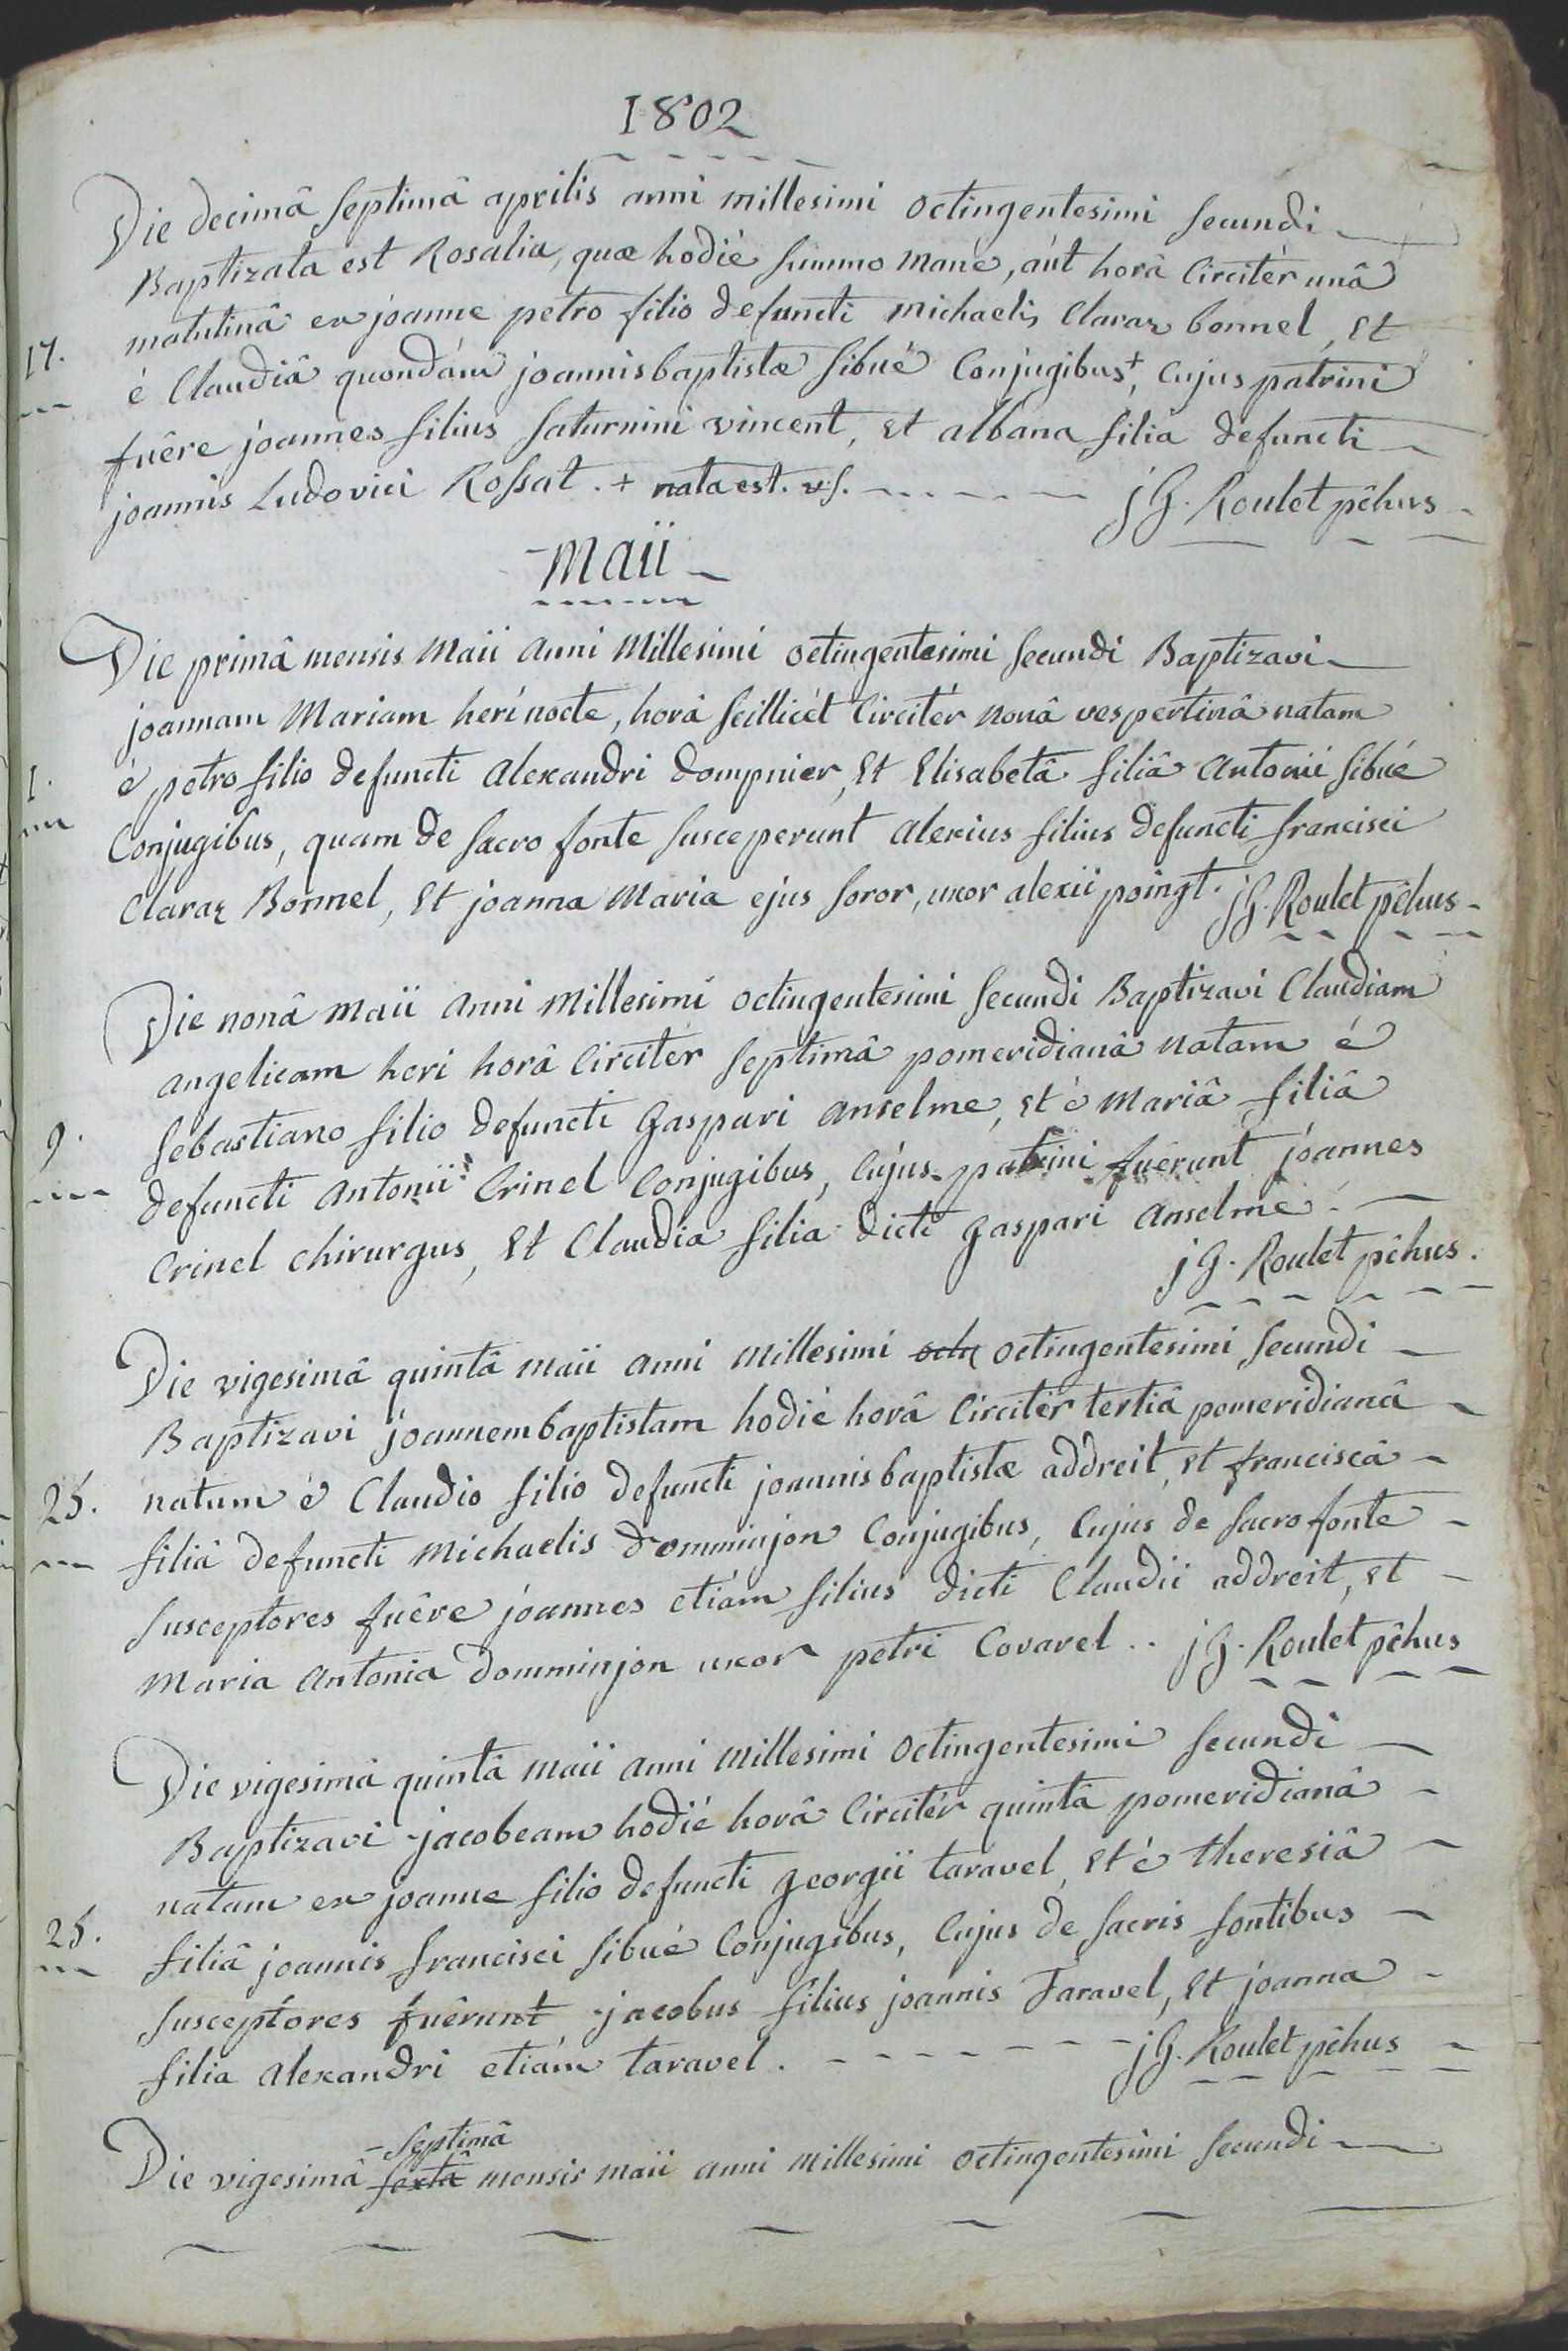 1802
Die decimâ septimâ aprilis anni millesimi octingentesimi secundi
Baptizata est Rosalia, quæ hodiè summo manè, aút horâ circitèr unâ
17.
matutinâ ex joanne petro filio defuncti michaelis Claraz bonnel, et
é Claudiâ quondám joannisbaptistæ Sibué Conjugibus+, cujus patrini
fuêre joannes filius Saturnini vincent, et albana filia defuncti
joannis Ludovici Rossat. + nata est. vs. jG. Roulet pêhus
Maii
Die primâ mensis Maii anni Millesimi octingentesimi secundi Baptizavi
joannam Mariam herí nocte, horâ scillicét circitér nonâ vespertinâ natam
1.
é petro filio defuncti Alexandri Dompnier, et Elisabetâ filiâ Antonii Sibué
Conjugibus, quam de sacro fonte susceperunt Alexius filius defuncti francisci
Claraz Bonnel, et joanna Maria ejus soror, uxor alexii poingt. jG. Roulet pêhus
Die nonâ Maii anni Millesimi octingentesimi secundi Baptizavi Claudiam
angelicam heri horâ circitér septimâ pomeridianâ natam é
9.
Sebastiano filio defuncti Gaspari Anselme, et é Mariâ filiâ
defuncti Antonii Crinel Conjugibus, cújus patrini fuêrunt jóannes
Crinel chirurgus, et Claudia filia dicti Gaspari Anselme.
jG. Roulet pêhus.
Die vigesimâ quintâ maii anni Millesimi octin octingentesimi secundi
Baptizavi joannembaptistam hodiè horâ circitér tertiâ pomeridianâ
25.
natum é Claudio filio defuncti joannisbaptistæ addreit, et franciscâ
filiâ defuncti Michaelis domminjon Conjugibus, cujus de sacro fonte
susceptores fuêre joannes etiám filius dicti Claudii addreit, et
Maria Antonia Domminjon uxor petri Covarel .. jG. Roulet pêhus
Die vigesimâ quintâ maii anni Millesimi octingentesimi secundi
Baptizavi jacobeam hodié horâ circitér quintâ pomeridianâ
natam ex joanne filio defuncti Georgii taravel, et é theresiâ
25.
filiâ joannis francisci Sibué Conjugibus, cujus de sacris fontibus
susceptores fuêrunt jacobus filius joannis Taravel, et joanna
filia Alexandri etiám taravel. jG. Roulet pêhus
septimâ
Die vigesimâ sextâ mensis maii anni Millesimi octingentesimi secundi